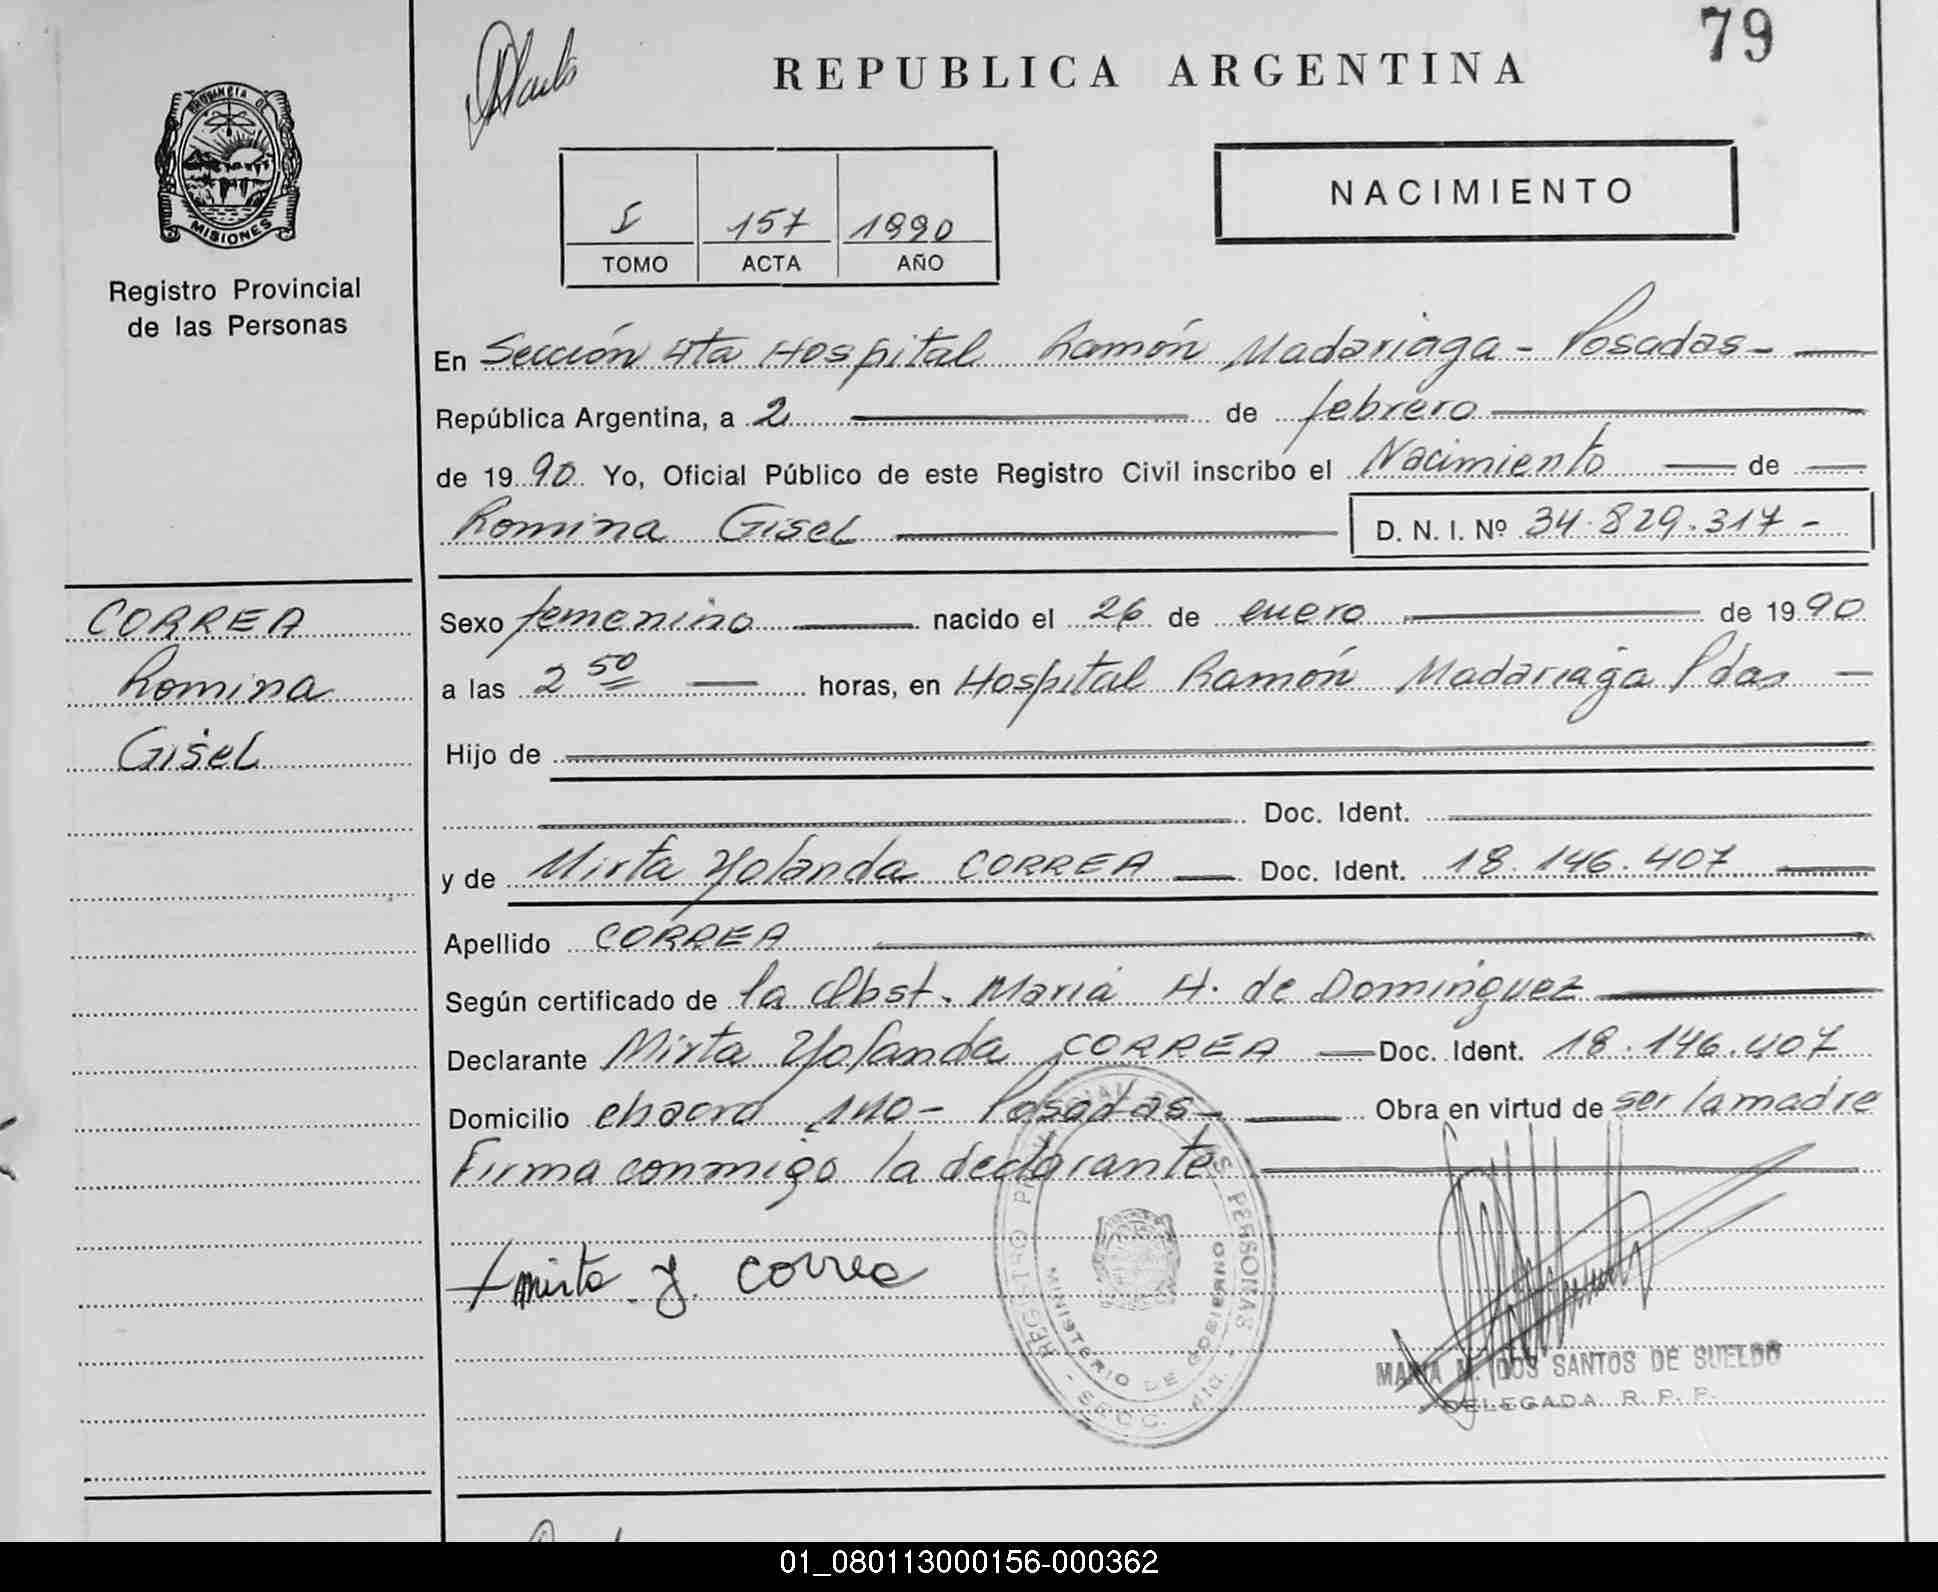 79
REPUBLICA ARGENTINA
PROVINCIA DE
MISIONES
Registro Provincial
de las Personas
NACIMIENTO
I 157 1990
TOMO ACTA AÑO
En Sección 4ta Hospital Ramón Madariaga - Posadas -
República Argentina, a 2 de febrero
de 1990 Yo, Oficial Público de este Registro Civil inscribo el Nacimiento de
Romina Gisel D. N. I. Nº 34.829.317 -
CORREA
Romina
Gisel
Sexo femenino nacido el 26 de enero de 1990
a las 2 50 horas, en Hospital Ramón Madariaga Pdas
Hijo de
Doc. Ident.
y de Mirta Yolanda CORREA Doc. Ident. 18.146.407
Apellido CORREA
Según certificado de la Obst. Maria H. de Dominguez
Declarante Mirta Yolanda CORREA Doc. Ident. 18.146.407
Domicilio chacra 140 - Posadas - Obra en virtud de ser la madre
Firma conmigo la declarante
mirta y. correa
REGISTRO PERSONAS
MINISTERIO DE GOBIERNO
MARIA M. DOS SANTOS DE SUELDO
DELEGADA R. P. P.
01_080113000156-000362